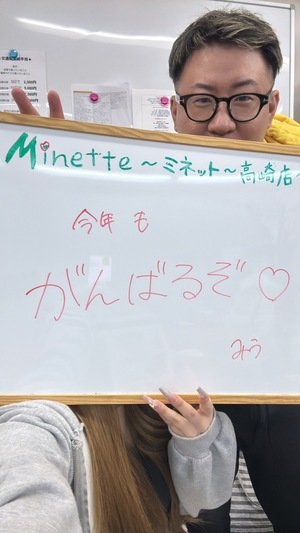 Minette～ミネット～高崎店
今年も
がんばるぞ♡
みう